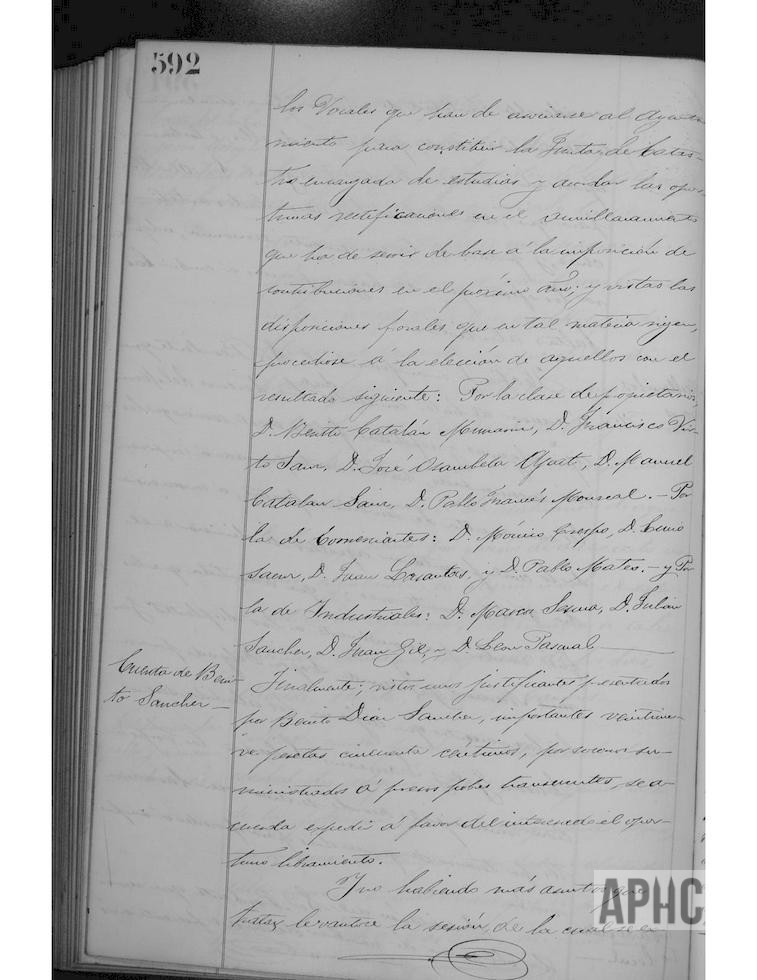 592
los Vocales que han de asociarse al Ayunta-
miento para constituir la Junta de Catas-
tro encargada de estudiar y acordar las opor-
tunas rectificaciones en el amillaramiento
que ha de servir de base á la imposición de
contribuciones en el próximo año; y vistas las
disposiciones forales que en tal materia rigen,
procedióse á la elección de aquellos con el
resultado siguiente: Por la clase de propietarios,
D. Benito Catalán, D. Francisco Vir-
to Sanz, D. José Ayart, D. Manuel
Catalan Sainz, D. Pablo Francés Monreal. - Por
la de Comerciantes: D. Crespo, D.
D. Juan y D. Pablo Mateo. - y Por
la de Industriales: D. Marcos Sesma, D. Julián
Sanchez, D. Juan Gil, y D. Leon Pascual
Cuenta de Beni-
to Sanchez -
Finalmente; vistos unos justificantes presentados
por Benito Diaz Sanchez, importantes veintinue-
ve pesetas cincuenta céntimos, por socorros su-
ministrados á presos pobres transeuntes, se a-
cuerda expedir á favor del interesado el opor-
tuno libramiento.
Y no habiendo más asuntos que
tratar levantose la sesión, de la cual se ex-
APHC